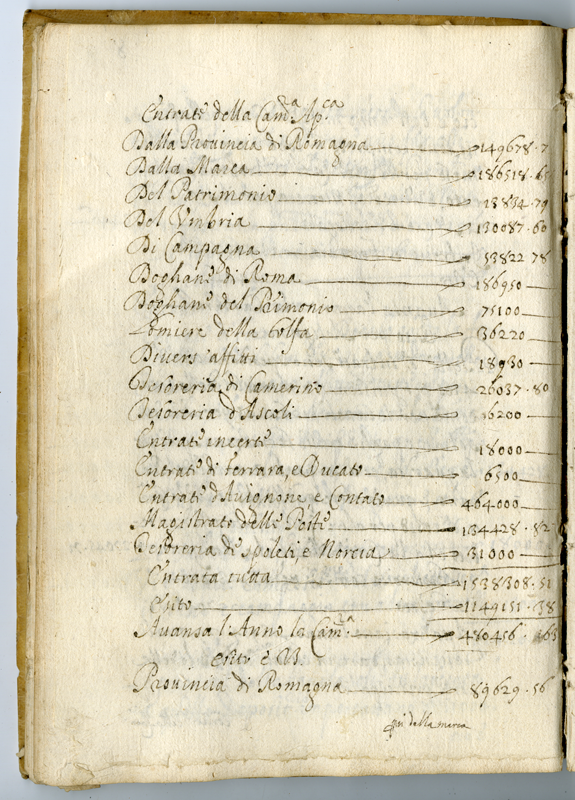 Entrate della Cam.ª Ap.ca
Dalla Prouincia di Romagna 149678.7
Dalla Marca 186518.65
Del Patrimonio 18834.79
Del Vmbria 130087.60
Di Campagna 53822 78
Doghane di Roma 186950
Doghane del Primonio 75100
Lomiere della tolfa 36220
Diuersi affitti 18930
Tesoreria di Camerino 26037.80
Tesoreria d'Ascoli 16200
Entrate incerte 18000
Entrate di ferrara, e Ducato 6500
Entrate d'Auignone e Contato 464000
Magistrato delle Poste 134428.82
Tesoreria di spoleti, e Norcia 31000
Entrata tutta 1538308.51
Esito 1149151.38
Auansa l'Anno la Cam.ª 480456.463
Esito è
Prouincia di Romagna 89629.56
dalla marca